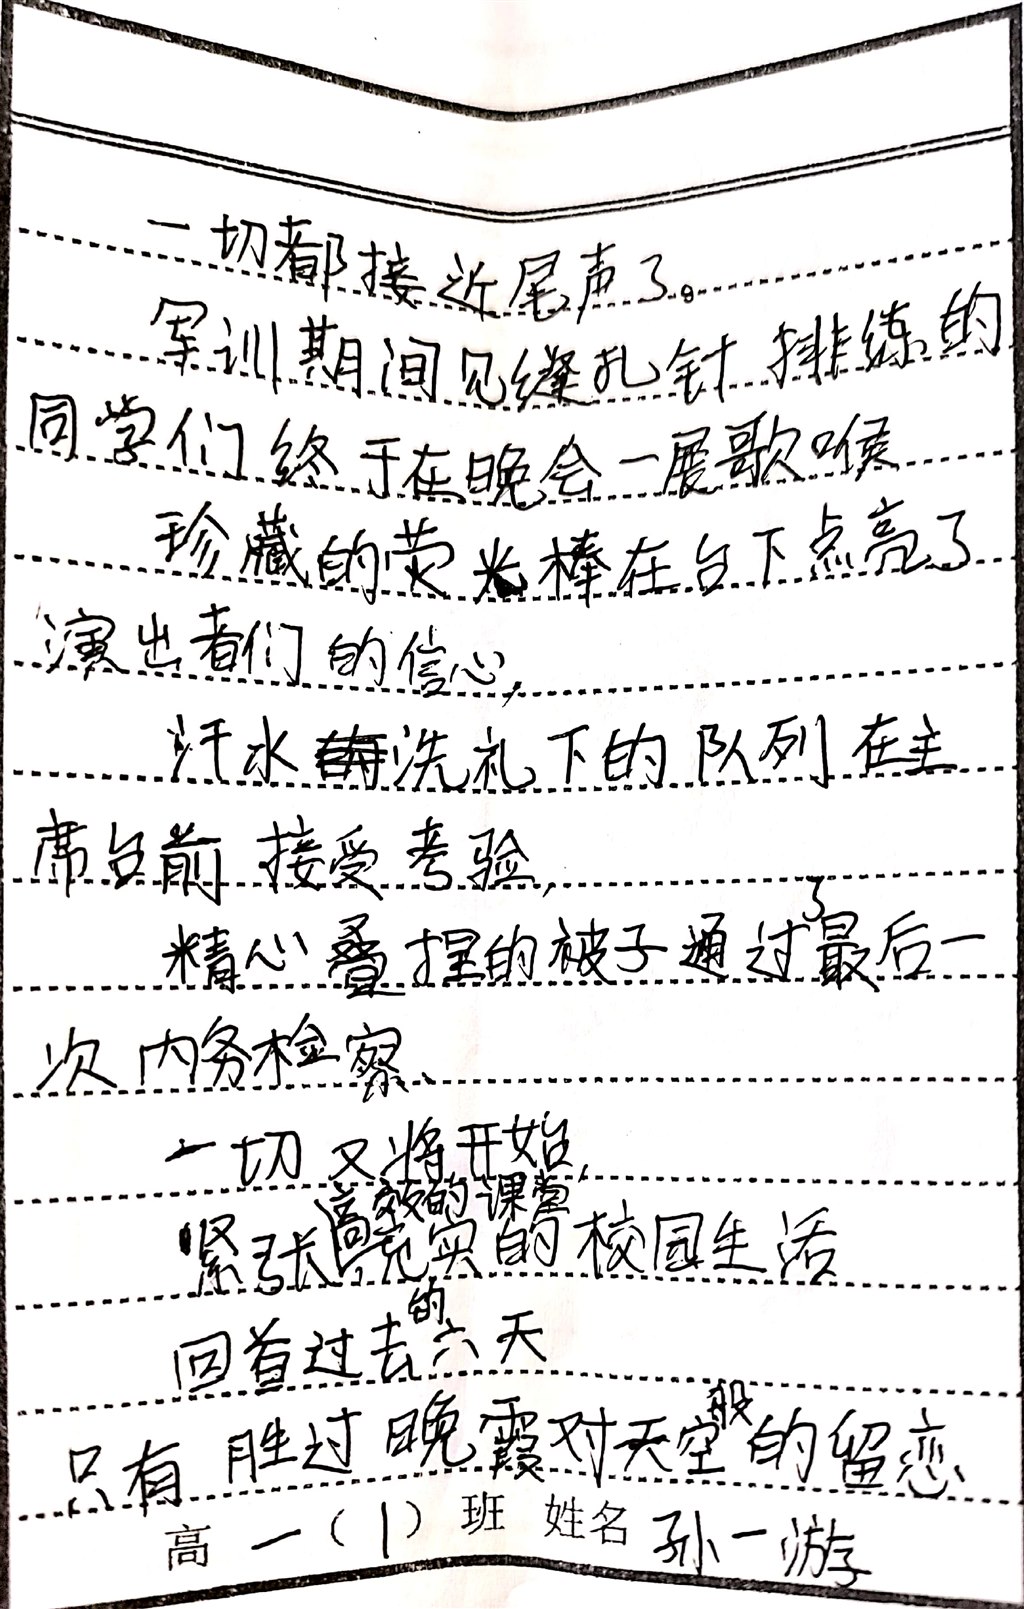 一切都接近尾声了。
军训期间见缝扎针排练的
同学们终于在晚会一展歌喉
珍藏的荧光棒在台下点亮了
演出者们的信心,
汗水洗礼下的队列在主
席台前接受考验,
精心叠捏的被子通过了最后一
次内务检察、
一切又将开始,
紧张高效的课堂,充实的校园生活
回首过去的六天
只有胜过晚霞对天空般的留恋
高一(1)班 姓名 孙一游